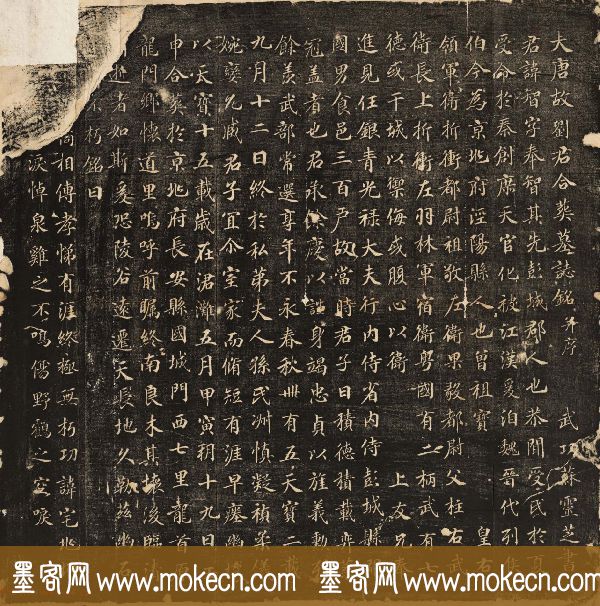 大唐故劉君合葬墓誌銘 并序 武功蘇靈芝書
君諱智字奉智其先彭城郡人也恭聞受氏於夏
受命於秦創廣天官化被江漢爰泊魏晉代列
伯今為京兆府涇陽縣人也曾祖寶 皇右
領軍衛折衝都尉祖敬左衛果毅都尉父柱右武
衛長上折衝左羽林軍宿衛勢國有二柄武有七
德或干城以禦侮或腹心以衛 上友兄
進見任銀青光祿大夫行內侍省內侍彭城縣
國男食邑三百戶故當時君子曰積德積載
冠蓋者也君承餘慶以謹身竭忠貞以旌義勳
餘羨武部常選享年不永春秋卌有五天寶二載
九月十二日終於私第夫人孫氏洲慎凝禎柔儀
婉孌允臧君子宜尒室家而脩短有涯早塟幽
以天寶十五載歲在涒灘五月甲寅朔十九日
申合葬於京兆府長安縣國城門西七里龍首
龍門鄉懷道里嗚呼前矚終南良木其壞後臨清
逝者如斯爰恐陵谷遠遷天長地久勒茲幽石
不朽銘曰
相傳孝悌有涯終極無朽功諱宅兆
淚悼泉雞之不鳴傷野鶴之空唳
墨客网 www.mokecn.com 墨客网 www.mokecn.com